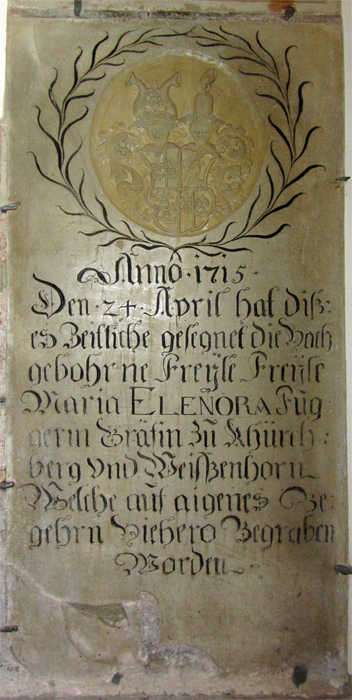 Anno · 1715 ·
Den · 24 · April hat diß:
es Zeitliche gesegnet die Hoch
gebohrne Freÿle Freÿle
Maria ELENORA Fug
gerin Gräfin zu Khürch:
berg vnd Weißenhorn
Welche auf aigenes Be:
gehrn hiehero Begraben
Worden